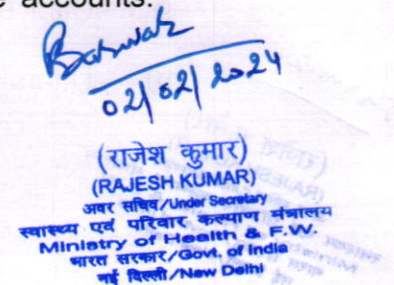 accounts.
02/02/2024
(राजेश कुमार)
(RAJESH KUMAR)
अवर सचिव/Under Secretary
स्वास्थ्य एवं परिवार कल्याण मंत्रालय
Ministry of Health & F.W.
भारत सरकार/Govt. of India
नई दिल्ली/New Delhi